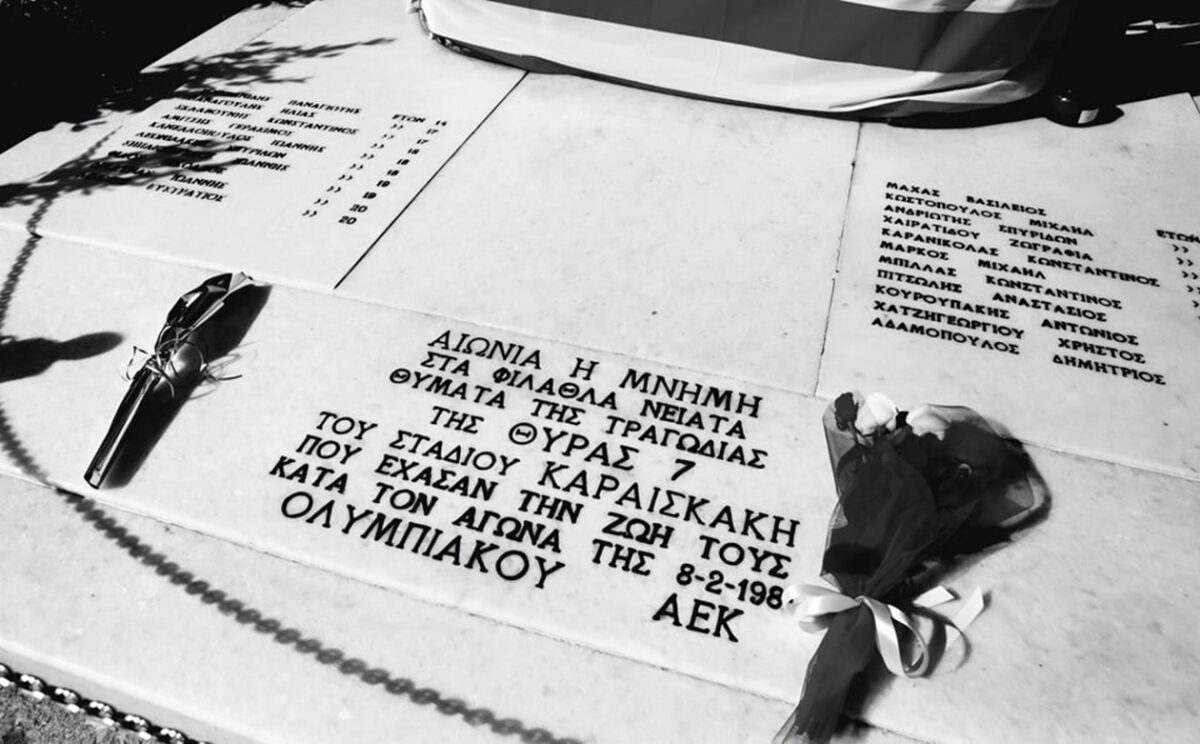 ΠΑΝΑΓΙΩΤΗΣ ΕΤΩΝ 14
ΠΑΝΑΓΟΥΛΗΣ ΗΛΙΑΣ » 17
ΣΚΛΑΒΟΥΝΗΣ ΚΩΝΣΤΑΝΤΙΝΟΣ » 17
ΑΜΙΤΣΗΣ ΓΕΡΑΣΙΜΟΣ » 18
ΚΑΝΕΛΛΟΠΟΥΛΟΣ ΙΩΑΝΝΗΣ » 18
ΛΕΩΝΙΔΑΚΗΣ ΣΠΥΡΙΔΩΝ » 18
ΙΩΑΝΝΗΣ » 19
» 19
ΙΩΑΝΝΗΣ » 20
ΕΥΣΤΡΑΤΙΟΣ » 20
ΜΑΧΑΣ ΒΑΣΙΛΕΙΟΣ
ΚΩΣΤΟΠΟΥΛΟΣ ΜΙΧΑΗΛ ΕΤΩΝ
ΑΝΔΡΙΩΤΗΣ ΣΠΥΡΙΔΩΝ »
ΧΑΙΡΑΤΙΔΟΥ ΖΩΓΡΑΦΙΑ »
ΚΑΡΑΝΙΚΟΛΑΣ ΚΩΝΣΤΑΝΤΙΝΟΣ »
ΜΑΡΚΟΣ ΜΙΧΑΗΛ »
ΜΠΙΛΛΑΣ ΚΩΝΣΤΑΝΤΙΝΟΣ
ΠΙΤΣΩΛΗΣ ΑΝΑΣΤΑΣΙΟΣ
ΚΟΥΡΟΥΠΑΚΗΣ ΑΝΤΩΝΙΟΣ
ΧΑΤΖΗΓΕΩΡΓΙΟΥ ΧΡΗΣΤΟΣ
ΑΔΑΜΟΠΟΥΛΟΣ ΔΗΜΗΤΡΙΟΣ
ΑΙΩΝΙΑ Η ΜΝΗΜΗ
ΣΤΑ ΦΙΛΑΘΛΑ ΝΕΙΑΤΑ
ΘΥΜΑΤΑ ΤΗΣ ΤΡΑΓΩΔΙΑΣ
ΤΗΣ ΘΥΡΑΣ 7
ΤΟΥ ΣΤΑΔΙΟΥ ΚΑΡΑΙΣΚΑΚΗ
ΠΟΥ ΕΧΑΣΑΝ ΤΗΝ ΖΩΗ ΤΟΥΣ
ΚΑΤΑ ΤΟΝ ΑΓΩΝΑ ΤΗΣ 8-2-198
ΟΛΥΜΠΙΑΚΟΥ ΑΕΚ